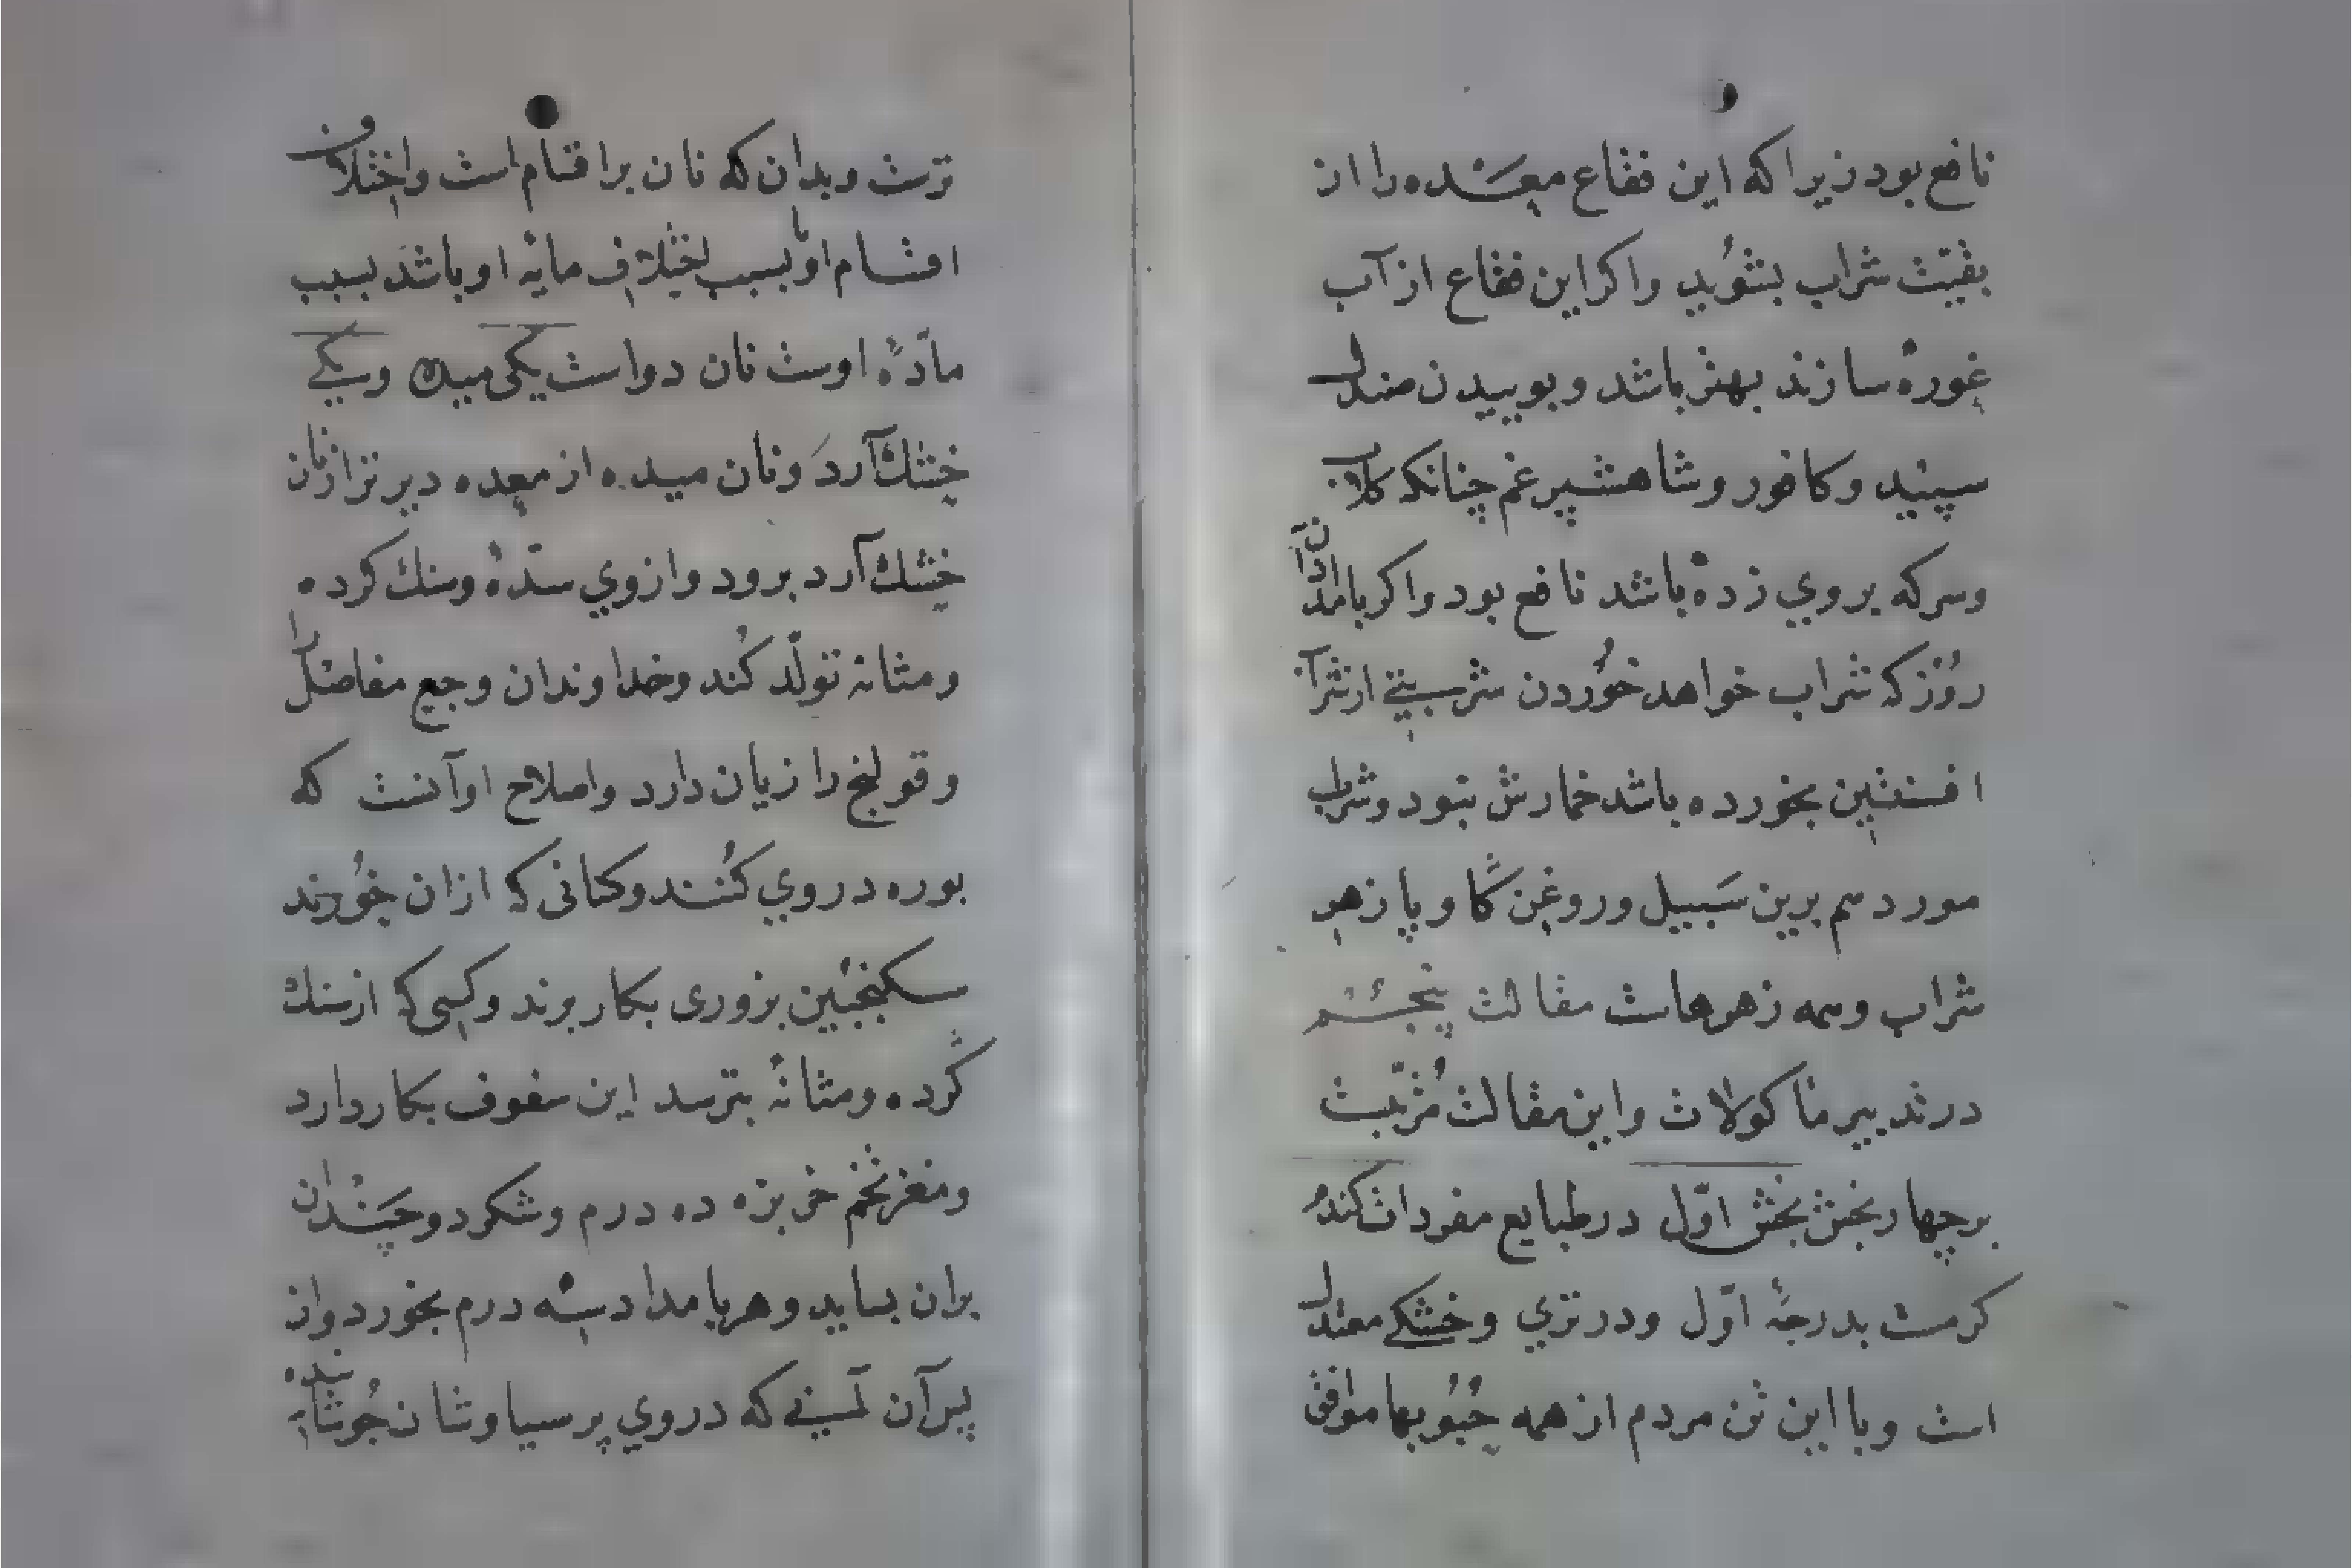 نافع بود زیرا که این فقاع معده را از
بقیت شراب بشوید واکر این فقاع از آب
غوره سازند بهتر باشد و بوییدن صندل
سپید وکافور وشاهسپرغم چنانکه کلاب
وسرکه بروي زده باشد نافع بود واکر بامدادان
روز که شراب خواهد خوردن شربتی از شراب
افسنتین بخورده باشد خمارش نبود وشراب
مورد هم برین سبیل وروغن کاو پازهر
شراب وهمه زهرهاست مقالت پنجم
در تدبیر ماکولات واین مقالت مرتبست
بر چهار بخش بخش اوّل در طبایع مفردات کندم
کرمست بدرجهٔ اوّل ودر تري وخشکی معتدل
است وبا این تن مردم از همه حبوبها موافق
ترست وبدان که نان بر اقسام است واختلاف
اقسام او بسبب اختلاف مایهٔ او باشد بسبب
مادّهٔ اوست نان دو است یکی میده ویکی
خشک آرد ونان میده از معده دیرتر از نان
خشک آرد برود واز وي سدّه وسنك کرده
ومثانه تولّد کند وخداوندان وجع مفاصل را
وقولنج را زیان دارد واصلاح او آنست که
بوره در وي کنند وکسانی که از ان خورند
سکنجبین بزوری بکار برند وکسی که از سنك
کرده ومثانه بترسد این سفوف بکار دارد
ومغز تخم خربزه ده درم وشکر دو چندان
بران بساید وهر بامداد سه درم بخورد واز
پس آن که در وي پرسیاوشان جوشانیده